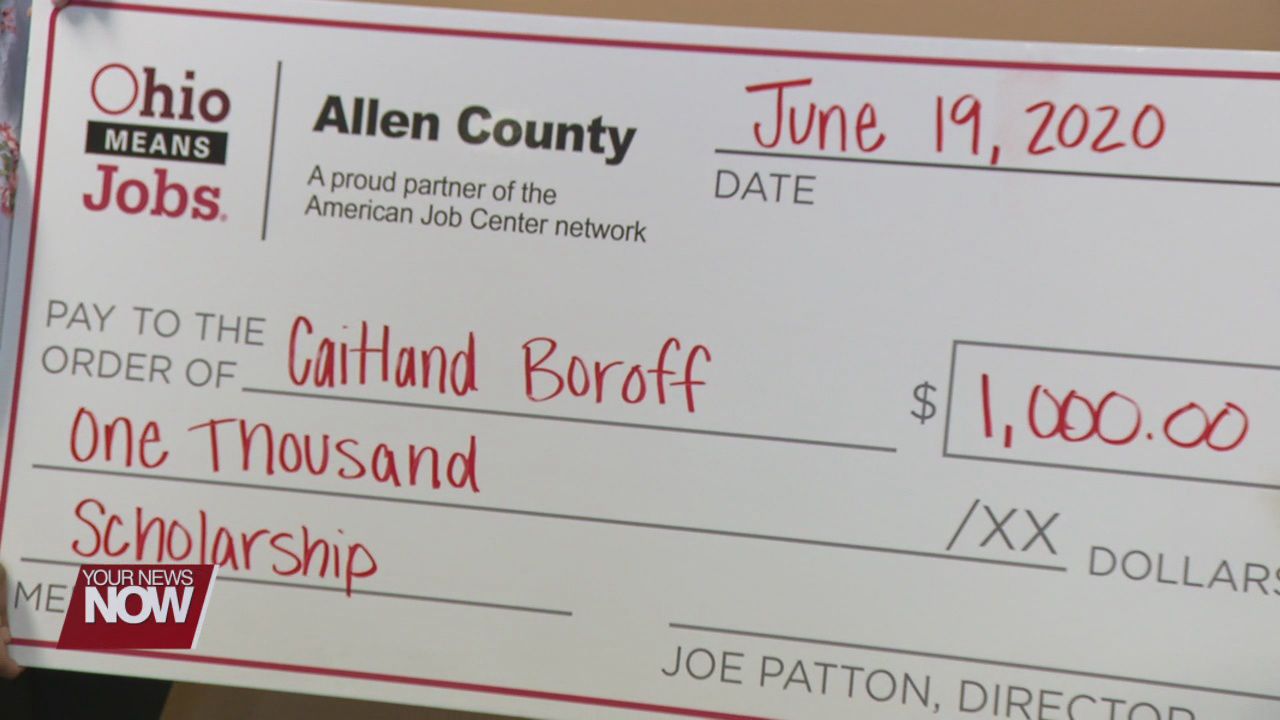 Ohio
MEANS
Jobs.
Allen County
A proud partner of the
American Job Center network
June 19, 2020
DATE
PAY TO THE
ORDER OF
Caitland Boroff
$ 1,000.00
One Thousand
/XX DOLLARS
Scholarship
ME
YOUR NEWS
NOW
JOE PATTON, DIRECTOR